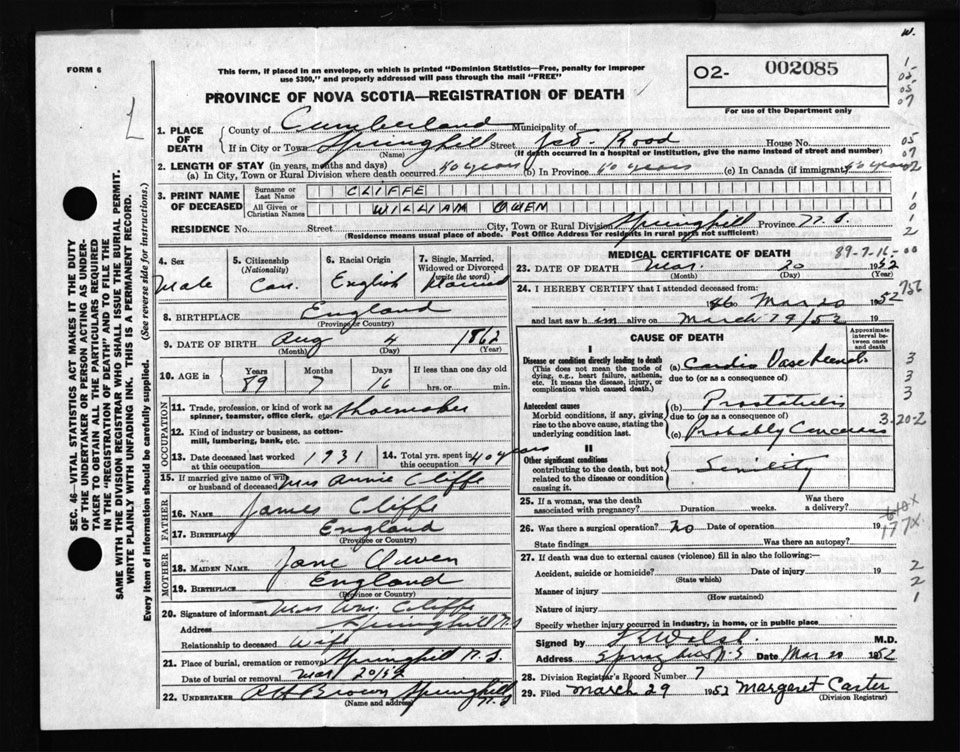 W.
FORM 6
This form, if placed in an envelope, on which is printed "Dominion Statistics—Free, penalty for improper
use $300," and properly addressed will pass through the mail "FREE"
PROVINCE OF NOVA SCOTIA—REGISTRATION OF DEATH
02- 002085
For use of the Department only
1
05
05
07
1. PLACE OF DEATH
County of Cumberland Municipality of
If in City or Town Springhill Street Jct. Road House No.
(Name) (If death occurred in a hospital or institution, give the name instead of street and number)
05
07
02
2. LENGTH OF STAY (in years, months and days)
(a) In City, Town or Rural Division where death occurred 40 years (b) In Province 40 years (c) In Canada (if immigrant) 40 years
3. PRINT NAME OF DECEASED
Surname or Last Name CLIFFE
All Given or Christian Names WILLIAM OWEN
1
0
1
2
RESIDENCE No. Street City, Town or Rural Division Springhill Province N.S.
(Residence means usual place of abode. Post Office Address for residents in rural parts not sufficient)
4. Sex
Male
5. Citizenship
(Nationality)
Can.
6. Racial Origin
English
7. Single, Married,
Widowed or Divorced
(write the word)
Married
8. BIRTHPLACE England
(Province or Country)
9. DATE OF BIRTH Aug 4 1862
(Month) (Day) (Year)
10. AGE in Years Months Days If less than one day old
89 7 16 hrs. or min.
OCCUPATION
11. Trade, profession, or kind of work as Shoemaker
spinner, teamster, office clerk, etc.
12. Kind of industry or business, as cotton-
mill, lumbering, bank, etc.
13. Date deceased last worked
at this occupation 1931
14. Total yrs. spent in
this occupation 40 years
15. If married give name of wife
or husband of deceased Mrs Annie Cliffe
FATHER
16. NAME James Cliffe
17. BIRTHPLACE England
(Province or Country)
MOTHER
18. MAIDEN NAME Jane Owen
19. BIRTHPLACE England
(Province or Country)
20. Signature of informant Mrs Wm. Cliffe
Address Springhill N.S
Relationship to deceased Wife
21. Place of burial, cremation or removal Springhill N.S.
Date of burial or removal Mar 20/52
22. UNDERTAKER Brown Springhill
(Name and address) N.S
MEDICAL CERTIFICATE OF DEATH 89-7-16-00
23. DATE OF DEATH Mar. 20 1952
(Month) (Day) (Year)
24. I HEREBY CERTIFY that I attended deceased from: 756
Mar 20 1952
and last saw him alive on March 19/52 19
CAUSE OF DEATH
Approximate interval between onset and death
I
Disease or condition directly leading to death
(This does not mean the mode of dying, e.g., heart failure, asthenia, etc. It means the disease, injury, or complication which caused death.)
(a) Cardio
due to (or as a consequence of)
3
3
3
Antecedent causes
Morbid conditions, if any, giving rise to the above cause, stating the underlying condition last.
(b) Prostatitis
due to (or as a consequence of)
(c) Probably Cancerous
3-20-2
II
Other significant conditions
contributing to the death, but not related to the disease or condition causing it.
Senility
25. If a woman, was the death
associated with pregnancy? Duration weeks.
Was there
a delivery?
610x
177x.
26. Was there surgical operation? No Date of operation 19
State findings Was there an autopsy?
27. If death was due to external causes (violence) fill in also the following:—
Accident, suicide or homicide? Date of injury 19
(State which)
Manner of injury
(How sustained)
Nature of injury
Specify whether injury occurred in industry, in home, or in public place
2
2
1
Signed by Walsh. M.D.
Address Springhill N.S Date Mar 20 1952
28. Division Registrar's Record Number 7
29. Filed March 29 1952 Margaret Carter
(Division Registrar)
SEC. 46—VITAL STATISTICS ACT MAKES IT THE DUTY
OF THE UNDERTAKER OR PERSON ACTING AS UNDER-
TAKER TO OBTAIN ALL THE PARTICULARS REQUIRED
IN THE "REGISTRATION OF DEATH" AND TO FILE THE
SAME WITH THE DIVISION REGISTRAR WHO SHALL ISSUE THE BURIAL PERMIT.
WRITE PLAINLY WITH UNFADING INK. THIS IS A PERMANENT RECORD.
Every item of information should be carefully supplied. (See reverse side for instructions.)